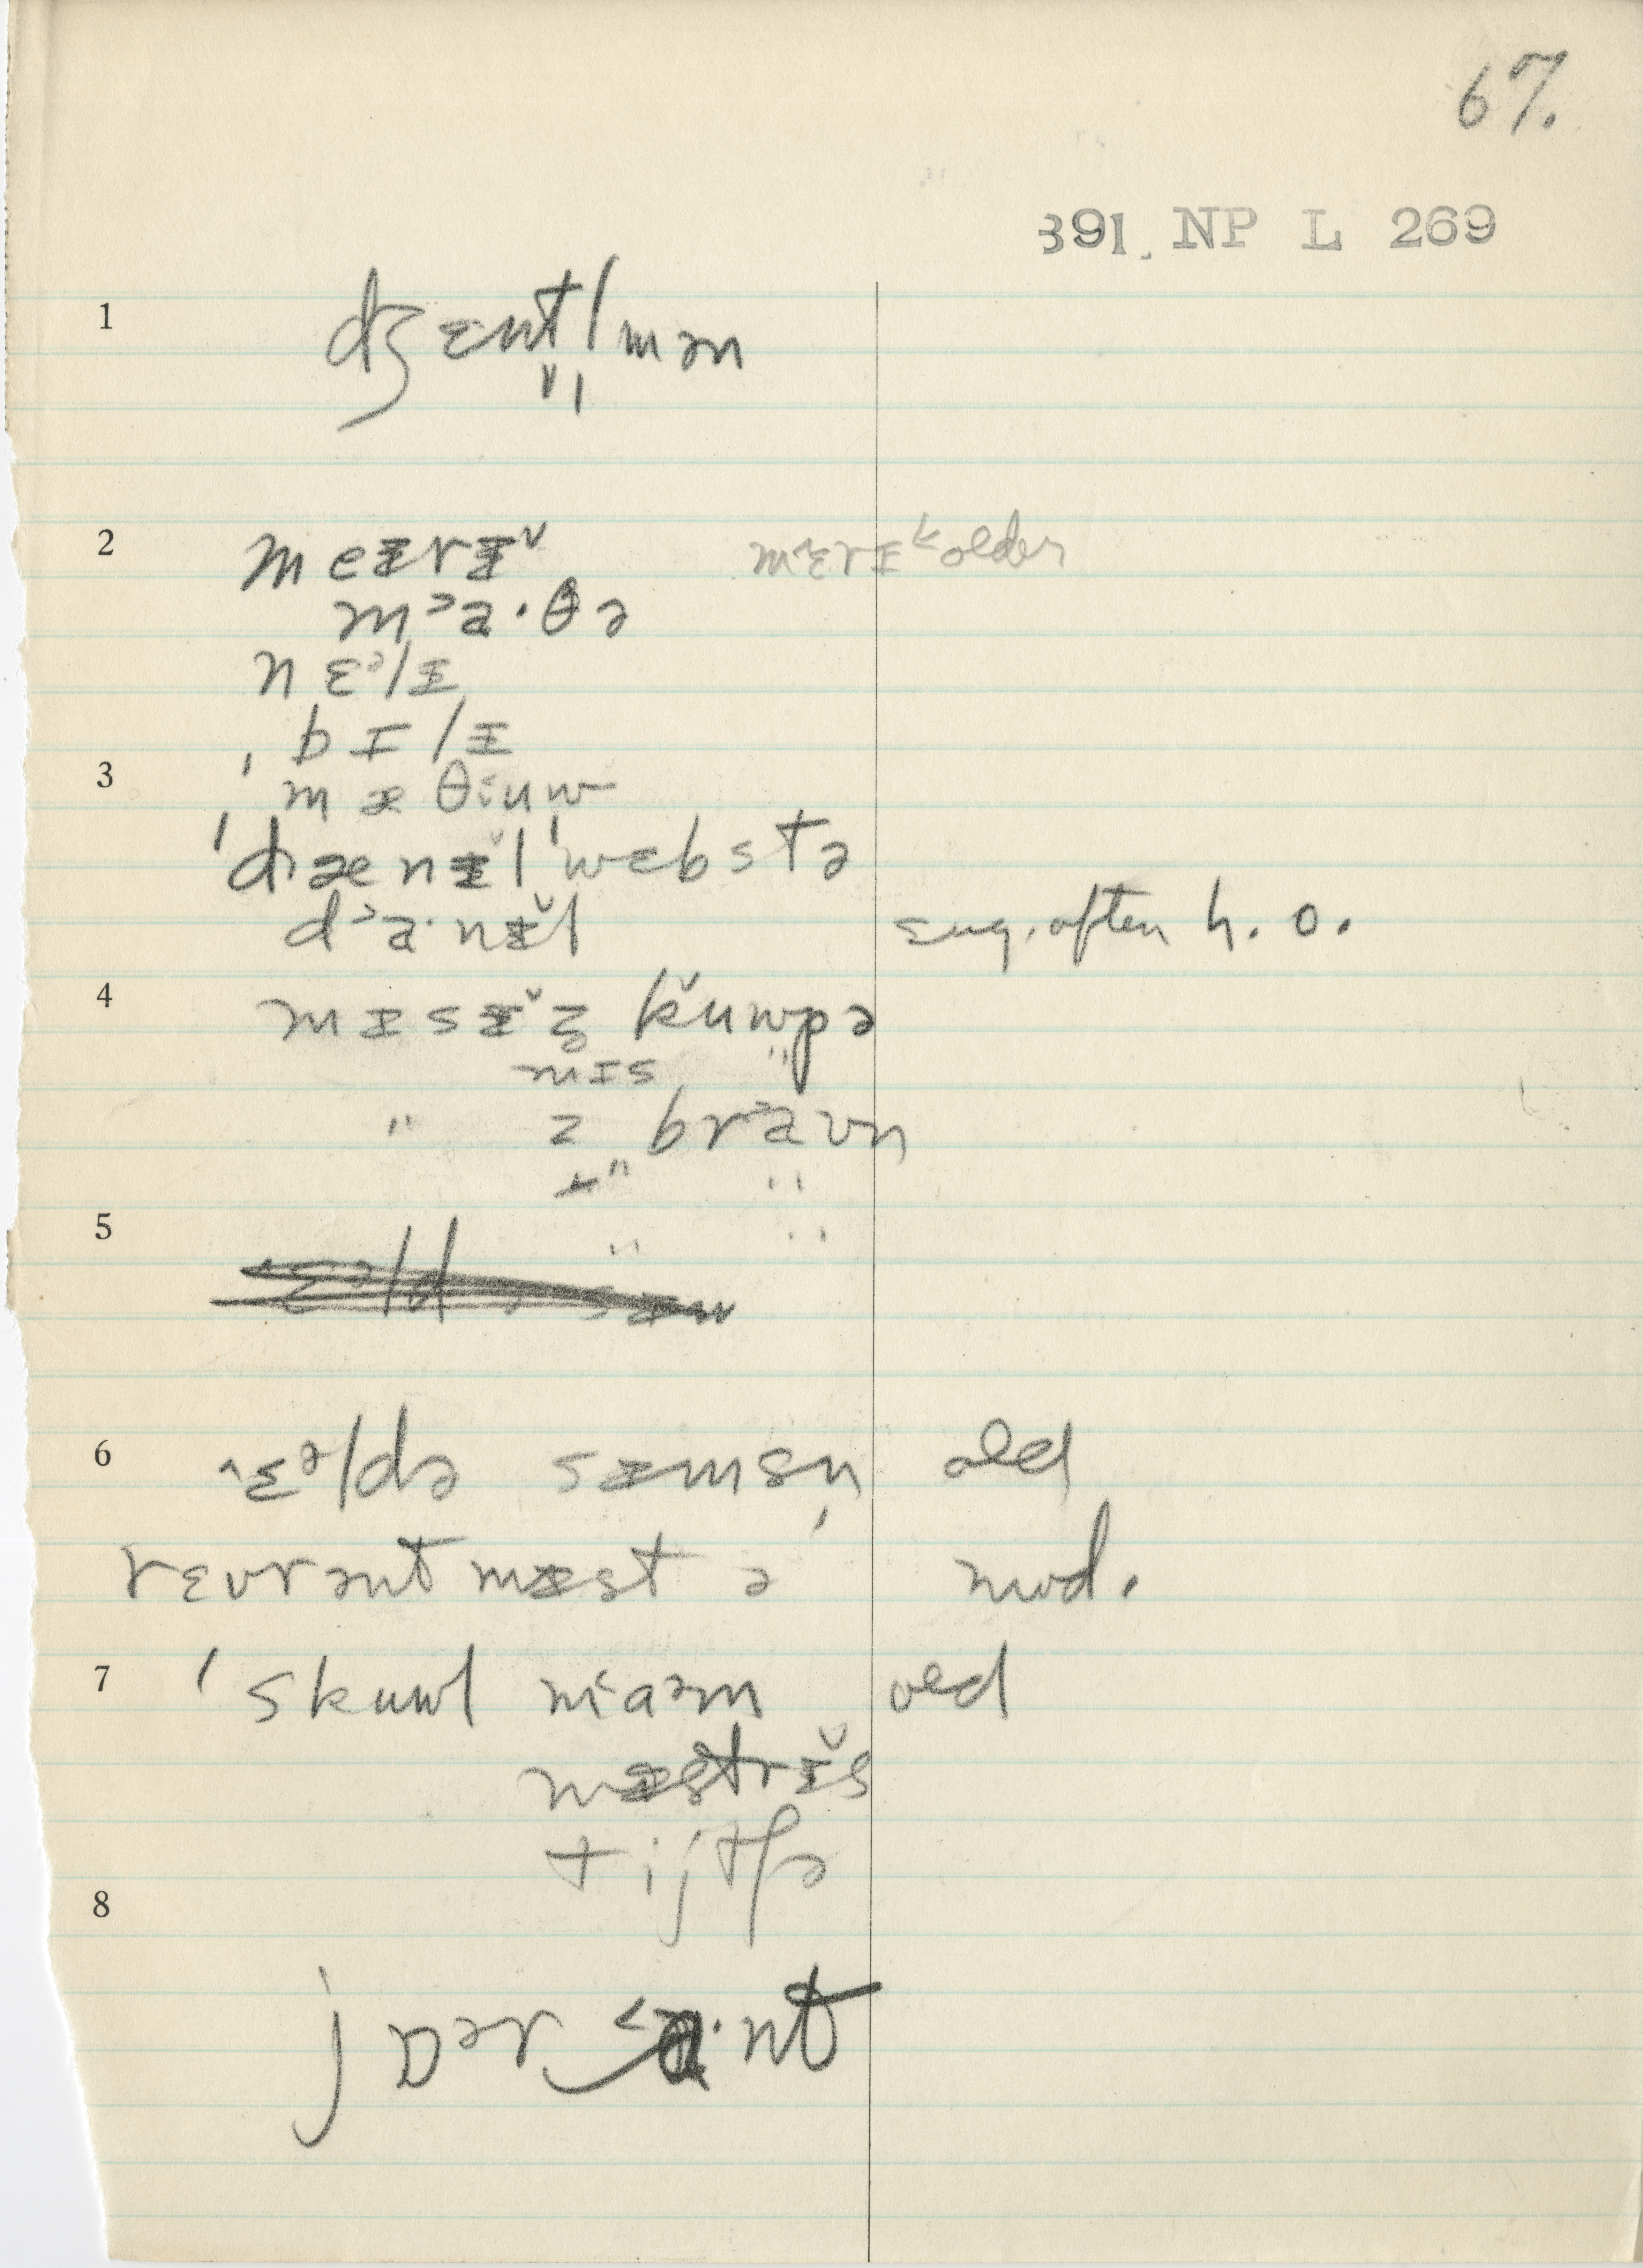 67.
391. NP L 269
1 dʒɛnt̬l̩mən
2 meᵻrᵻˇ mˆɛrɪ˂ older
mᵓa·θə
nɛᵊlᵻ
ˌbɪlᵻ
3 mæθiuw
ˈdænᵻ̆lˈwɛbstə
dᵓa·nᵻ̆l Eng. often h. o.
4 mɪsᵻ̆z̥ k̆uwpə
mɪs "
" z brᵓaʊn
" "
5 " "
6 ˆɛᵊldə sᵻmsn̩ old
rɛvrənt mᵻstə mod.
7 ˈskuwl maᵊm old
mᵻstrᵻ̆s
tijtʃə
8 jɒᵊr ˂a·nt